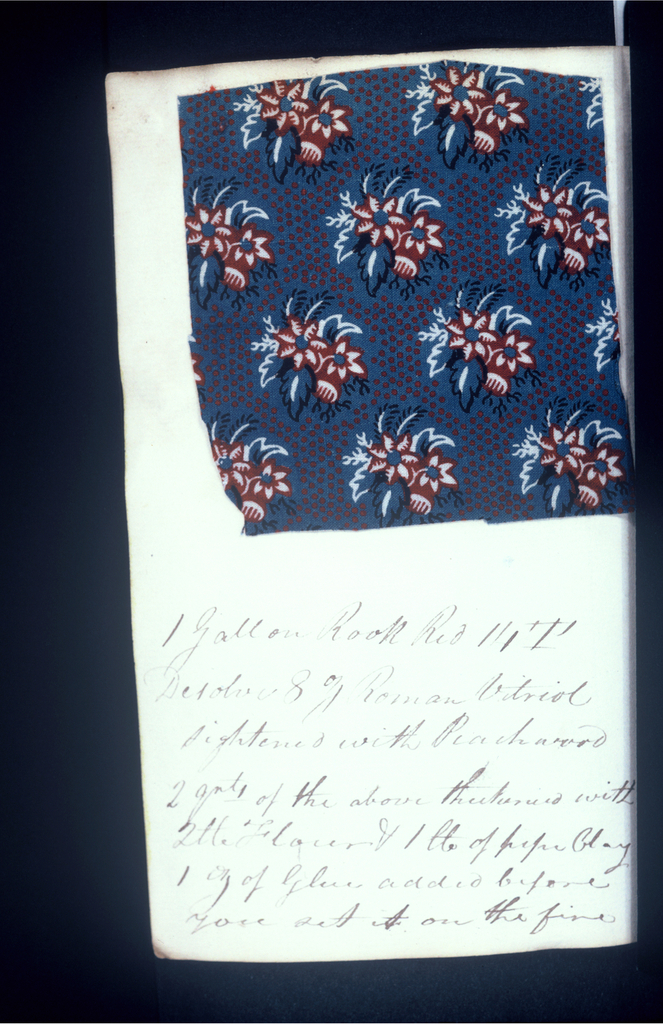 1 Gallon Rook Red
Desolve 8 oz Roman Vitriol
Sightened with Peachwood
2 qrts of the above thickened with
2 lb Flower & 1 lb of pipe Clay
1 oz of Glue added before
you set it on the fire